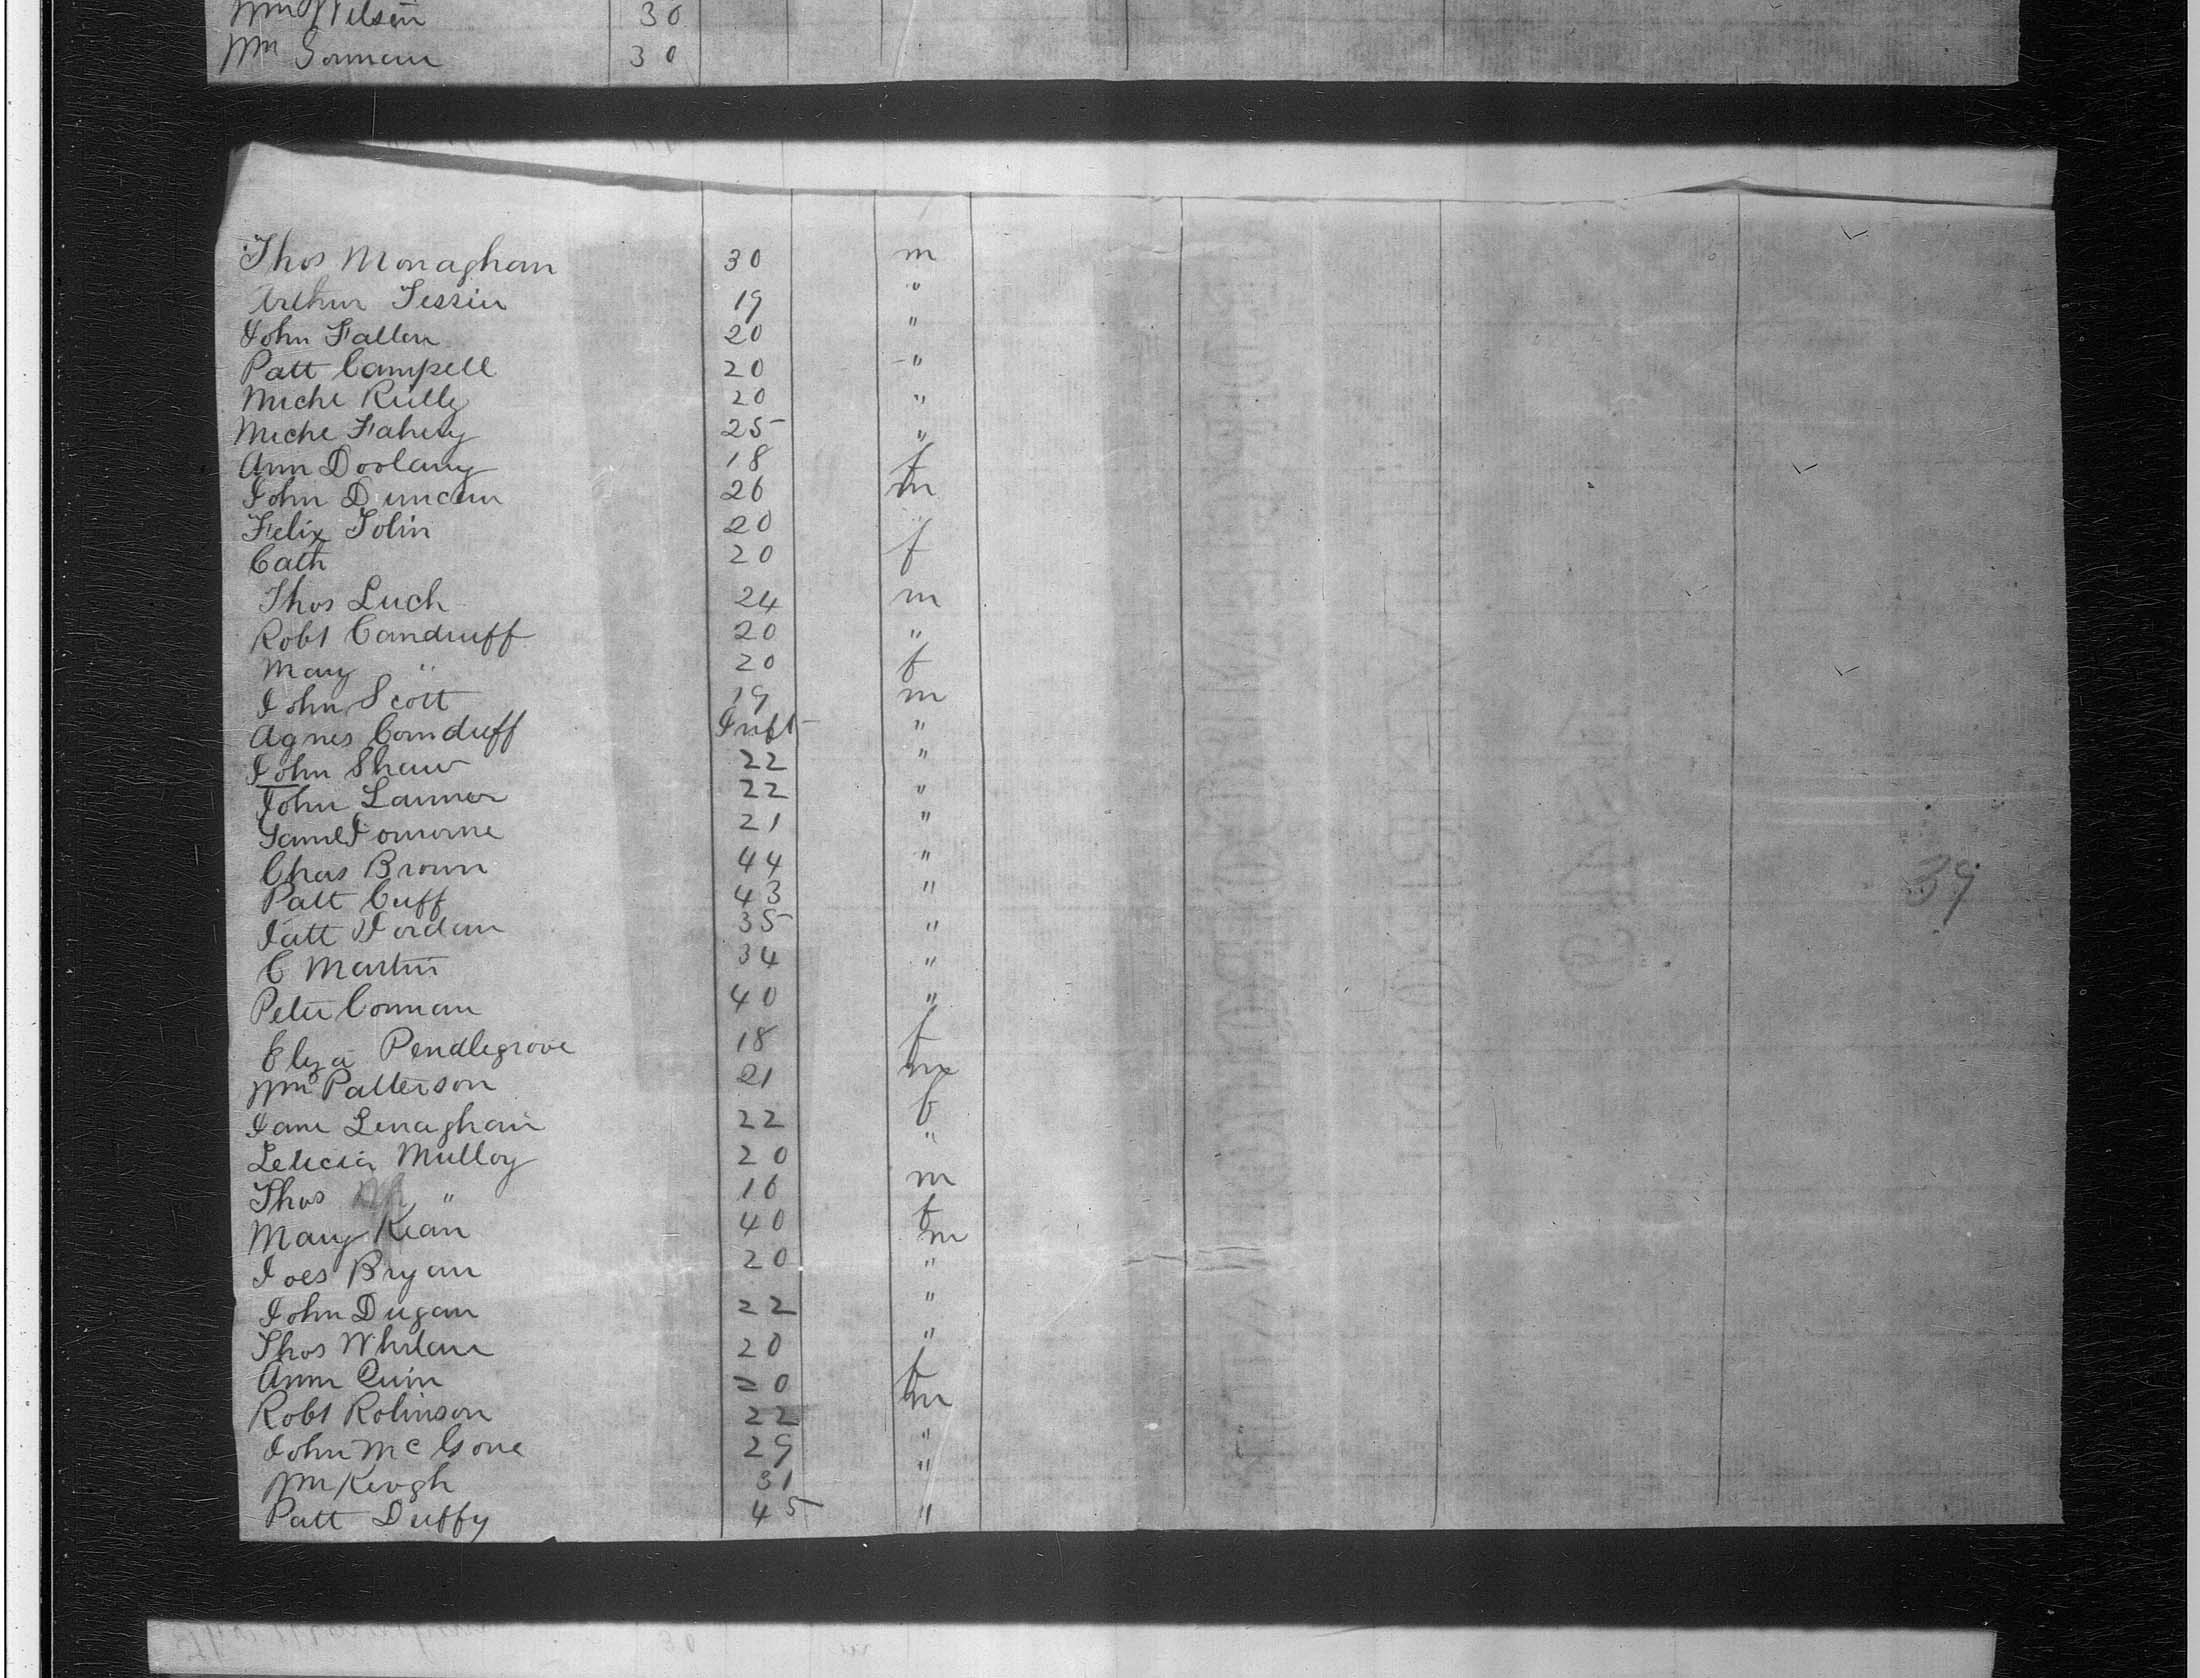 Wm Wilson 30
Wm Gorman 30
Thos Monaghan 30 m
Arthur Tessin 19 "
John Fallen 20 "
Patt Campell 20 "
Miche Rielly 20 "
Miche Fahey 25 "
Ann Doolany 18 f
John Duncan 26 m
Felix Tolin 20
Cath 20 f
Thos Luch 24 m
Robt Canduff 20 "
Mary " 20 f
John Scott 19 m
Agnes Comduff Inft "
John Shaw 22 "
John Lannon 22 "
21 "
Chas Brown 44 "
Patt Cuff 43 "
Patt Jordan 35 "
C Martin 34 "
Peter Connan 40 "
Eliza Pendlegrove 18 f
Wm Patterson 21 m
Jane Lenaghan 22 f
Leticia Mulloy 20 "
Thos " 16 m
Mary Kean 40 f
m
Joes Bryan 20 "
John Dugan 22 "
Thos Whelan 20 "
Ann Quin 20 f
Robt Robinson 22 m
John McGone 29 "
Wm Keogh 31 "
Patt Duffy 45 "
39
30 m